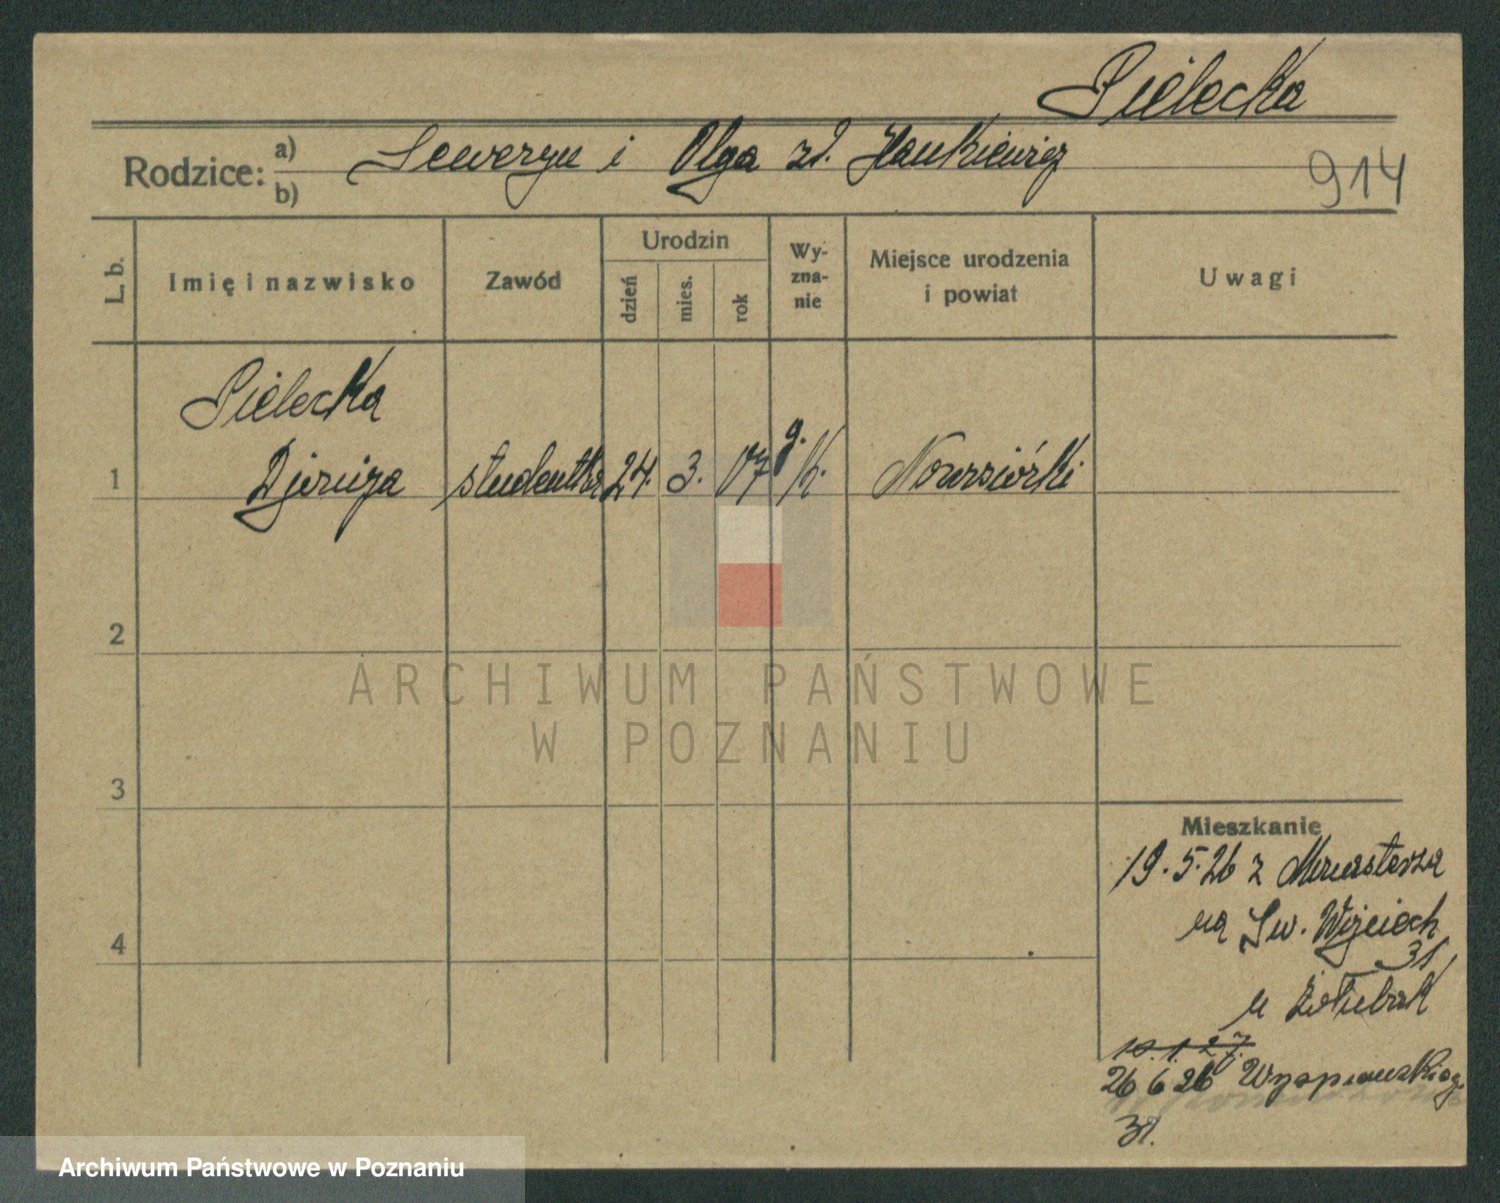 Pielecka
Rodzice: a) Seweryn i Olga zd. Hankiewicz
b)
914
L. b. Imię i nazwisko Zawód Urodzin dzień mies. rok Wyznanie Miejsce urodzenia i powiat Uwagi
Pielecka
1 studentka 24. 3. 07 g. K.
2
3
4
Mieszkanie
19.5.26 z
na Św. Wojciech
31
u
10.1.27.
26 6 26 Wyspiańskieg.
31.
ARCHIWUM PAŃSTWOWE
W POZNANIU
Archiwum Państwowe w Poznaniu